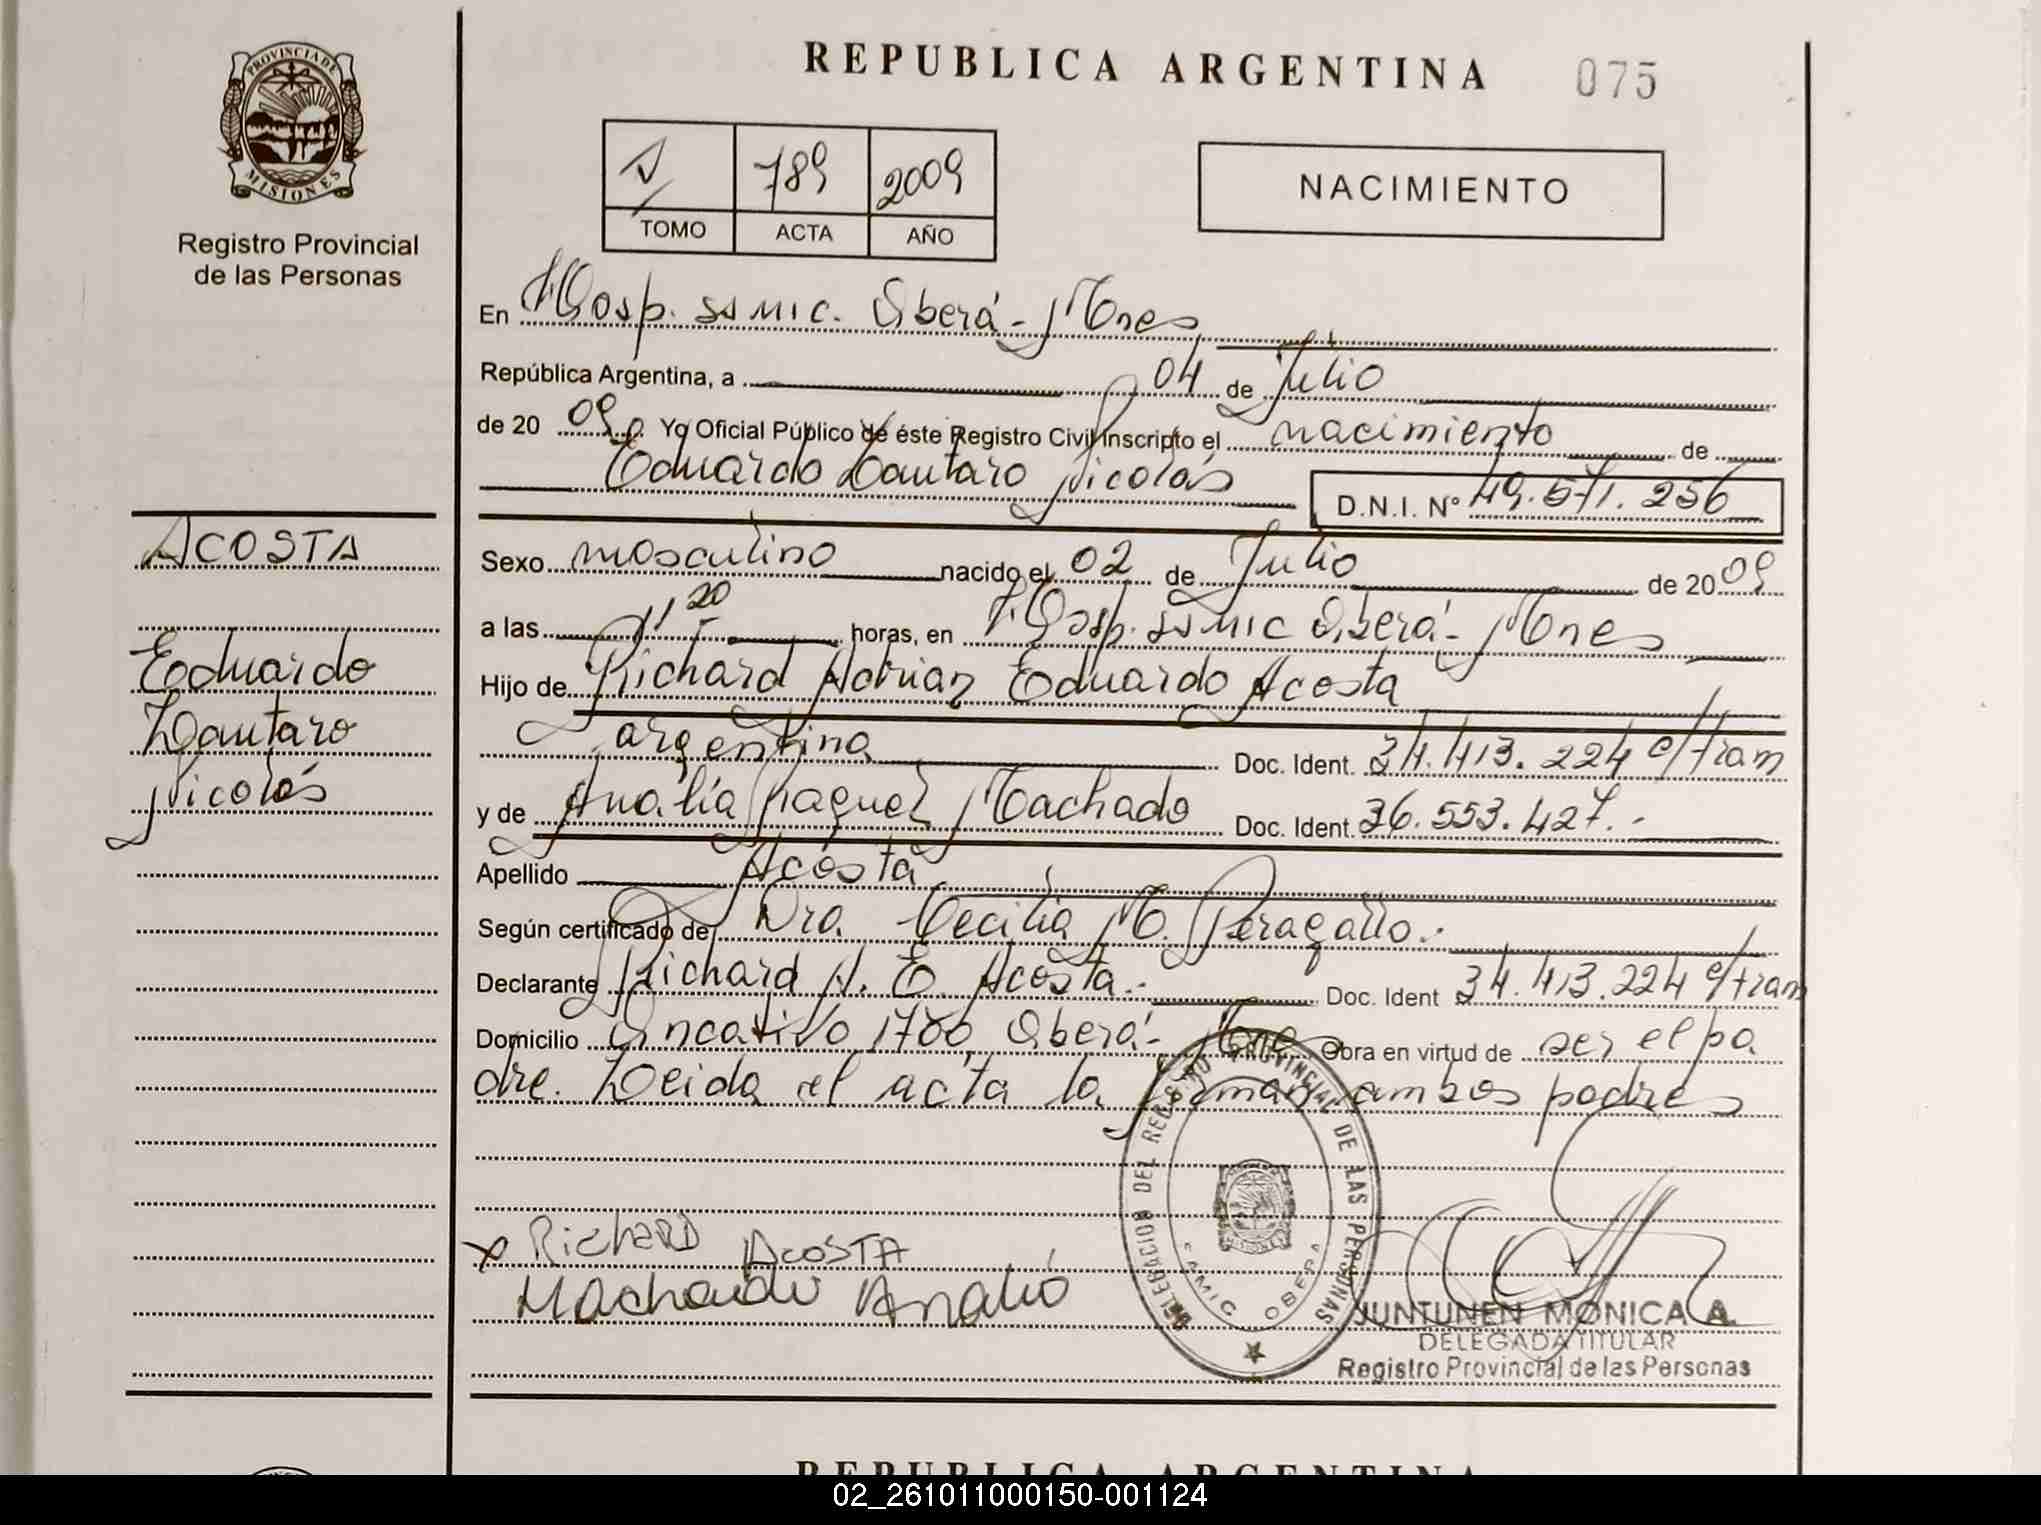 PROVINCIA DE
MISIONES
Registro Provincial
de las Personas
REPUBLICA ARGENTINA 075
789 2009
TOMO ACTA AÑO
NACIMIENTO
En Hosp. ssmic. Oberá - Mnes
República Argentina, a 04 de Julio
de 20 09 Yo Oficial Público de éste Registro Civil Inscripto el nacimiento de
Eduardo Lautaro Nicolás D.N.I. Nº 49.571.256
ACOSTA
Eduardo
Lautaro
Nicolás
Sexo masculino nacido el 02 de Julio de 20 09
a las 11 20 horas, en Hosp. ssmic Oberá - Mnes
Hijo de Richard Adrian Eduardo Acosta
argentina Doc. Ident. 34.413.224 e/tram
y de Analía Raquel Machado Doc. Ident. 36.553.427.-
Apellido Acosta
Según certificado de Dra. Cecilia M. Peragallo.-
Declarante Richard A. E. Acosta.- Doc. Ident 34.413.224 e/tram
Domicilio Oncativo 1780 Oberá - Mnes Obra en virtud de ser el pa
dre. Leida el acta la firman ambos padres
x RicHARD ACOSTA
Machado Analia
DELEGACION DEL REGISTRO PROVINCIAL DE LAS PERSONAS
MISIONES
SAMIC OBERA
JUNTUNEN MONICA A.
DELEGADA TITULAR
Registro Provincial de las Personas
REPUBLICA ARGENTINA
02_261011000150-001124